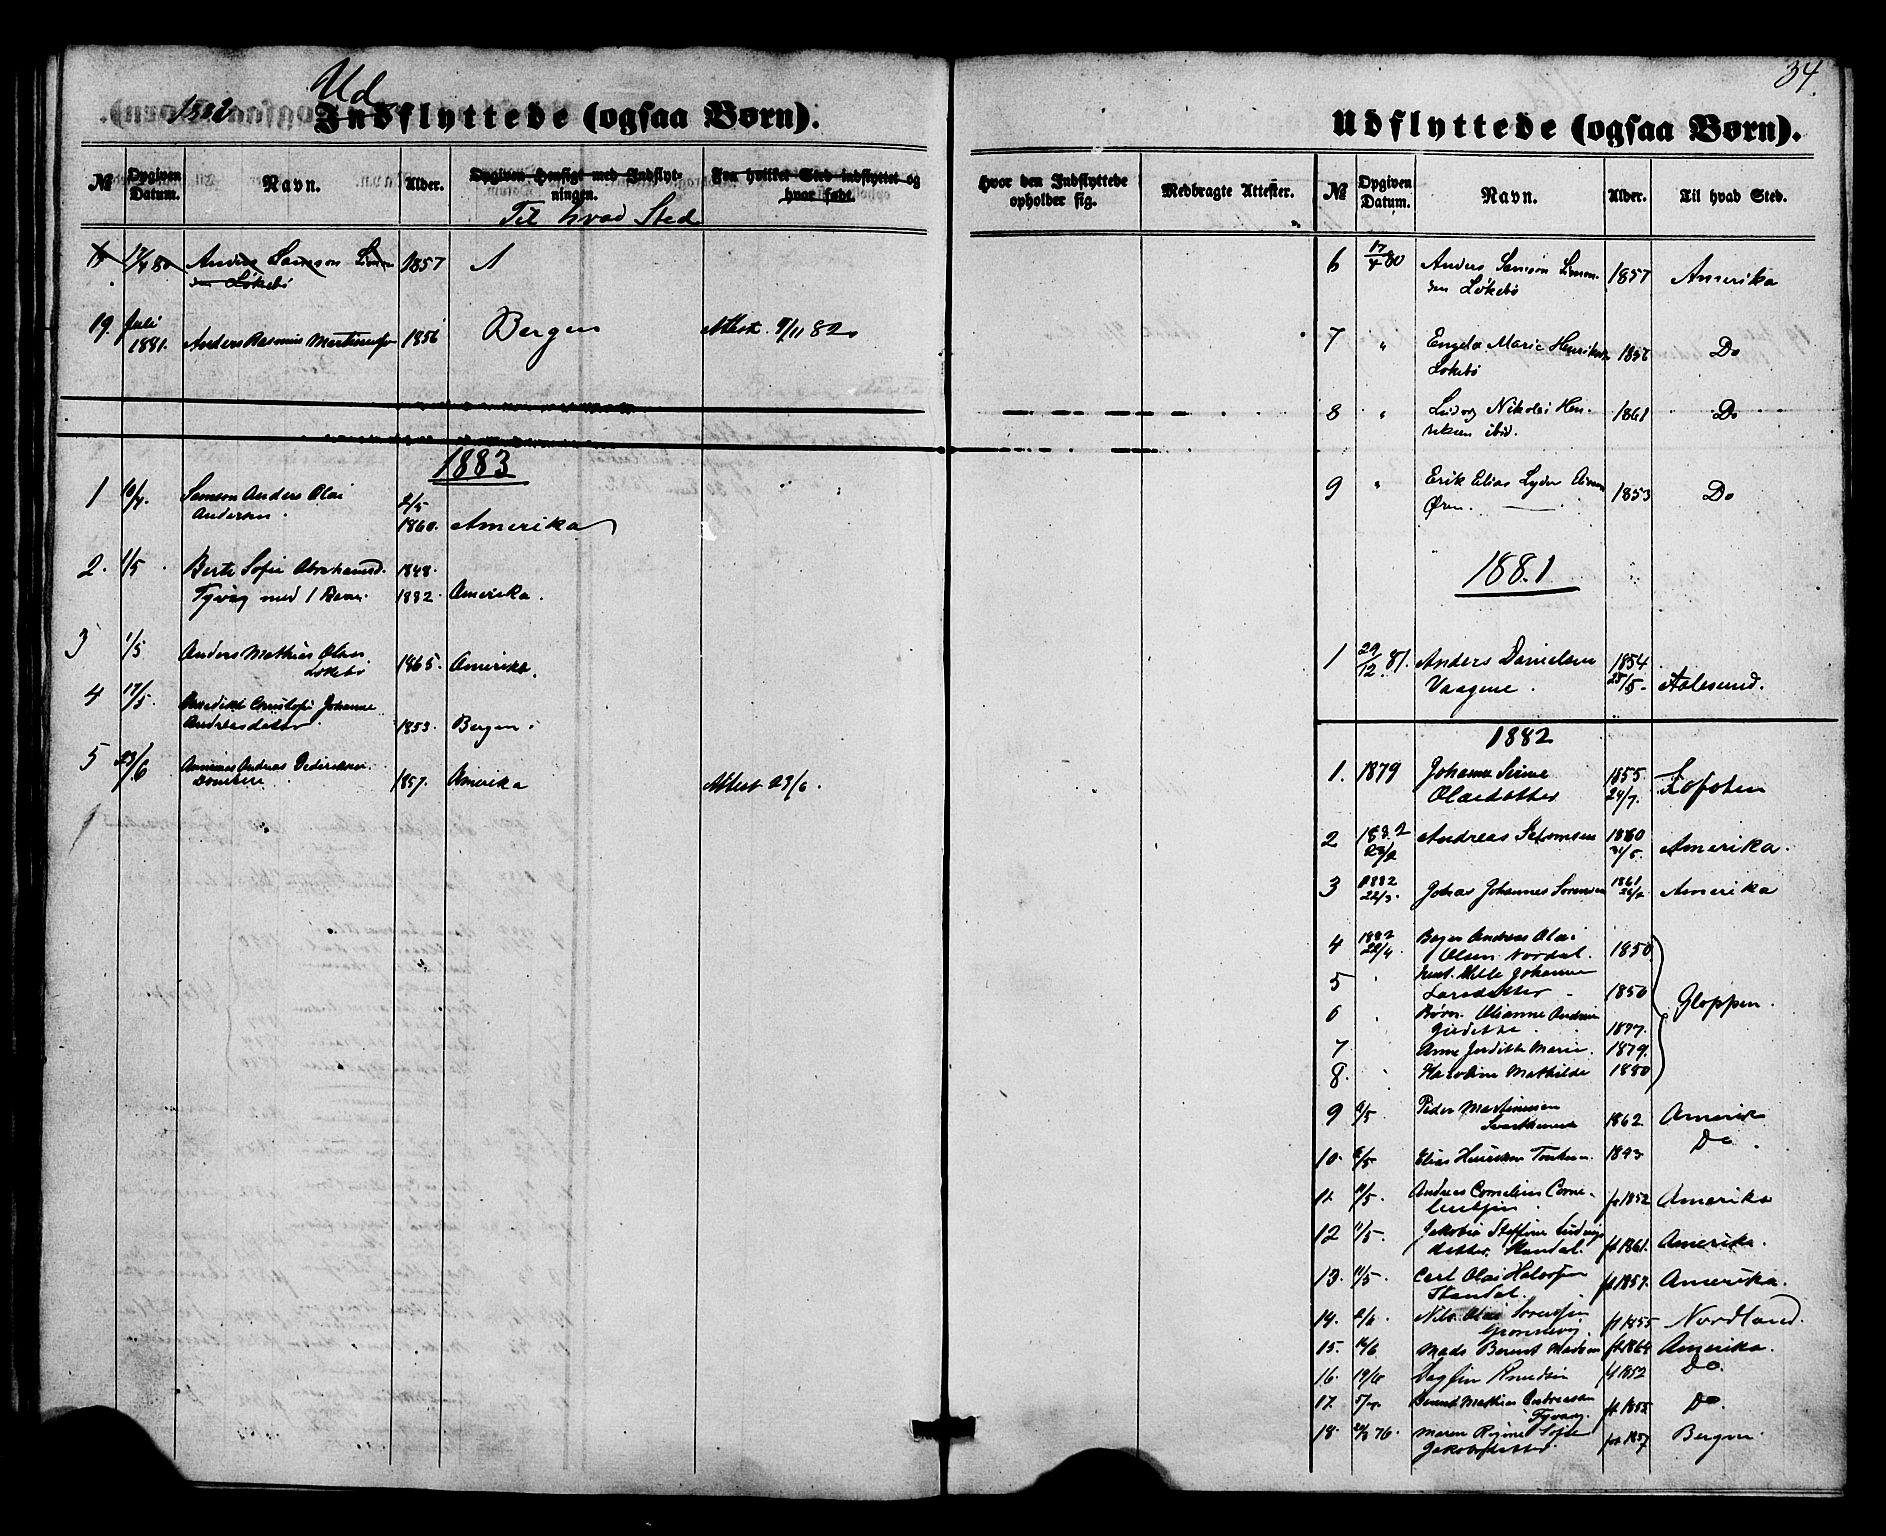 34.
1882 Ud
Indflyttede (ogsaa Børn).
№ Opgiven Datum. Navn. Alder. Opgiven Hensigt med Indflytningen. Fra hvilket Sted indflyttet og hvor født.
Til hvad Sted
17/4 80 Anders Samson 1857
Løkebø
19. Juli 1881. Anders Rasmus 1856 Bergen Attest 9/11 82
1883
1 Samson Anders Olai
Andersen. 2/5 1860. Amerika
2. 1/5 Berte Sofie Abrahamsd. 1848.
Tyvaag med 1 Barn. 1882. Amerika.
3 1/5 Anders Mathias Olsen
Løkebø 1865. Amerika.
4 17/5 Johanne
Andreasdatter 1853. Bergen.
5 23/6 Andreas Dideriksen
1857. Amerika Attest 23/6.
Udflyttede (ogsaa Børn).
Hvor den Indflyttede opholder sig. Medbragte Attester. № Opgiven Datum. Navn. Alder. Til hvad Sted.
6 17/4 80 Anders Samson Simon-
sen Løkebø 1857 Amerika
7 " Engela Marie
Løkebø 1856 Do
8 " Ludvig Nikolai Hen-
riksen ibid. 1861 Do
9 " Erik Elias Lyder
Øren. 1853 Do
1881
1 29/12 81. Anders Danielsen 1854
Vaagene. 25/5. Aalesund.
1882
1. 1879 Johanne Serine 1855
Olaidatter 24/7. Lofoten
2 1882 Andreas 1860
31/5. Amerika.
3 1882 22/3. Johan Johannes Sørensen 1861 Amerika
4 1882 22/4 Andreas Olai
Olsen Nordal. 1850
5 " Johanne
Larsdatter 1850 Gloppen.
6 " Børn. Olianne
1877.
7 Anne Marie. 1879.
8. " Karoline Mathilde 1880
9 Peder Martinusen
1862 Amerik
10. Elias Henriksen 1843 Do
11. 11/5. Andreas Cornelius Corne-
liussen. ft 1852 Amerika
12 11/5. Jakobia Steffine Ludvigs
datter, Skandal. ft 1861. Amerika.
13. 11/5. Carl Olai Halvorsen
Skandal. ft 1857. Amerika.
14. 2/6 Nils Olai Sørensen
Grønevig. ft 1855 Nordland.
15. 14/6 Mads Berent Madsen ft 1864 Amerika.
16. 19/6 Dagfin Knudsen ft 1852 Do.
17. Berent Mathias Andreassen
Tyvaag. ft 1855 Do.
18. 76. Maren Regine Sofie
Jakobsdatter. ft 1857 Bergen